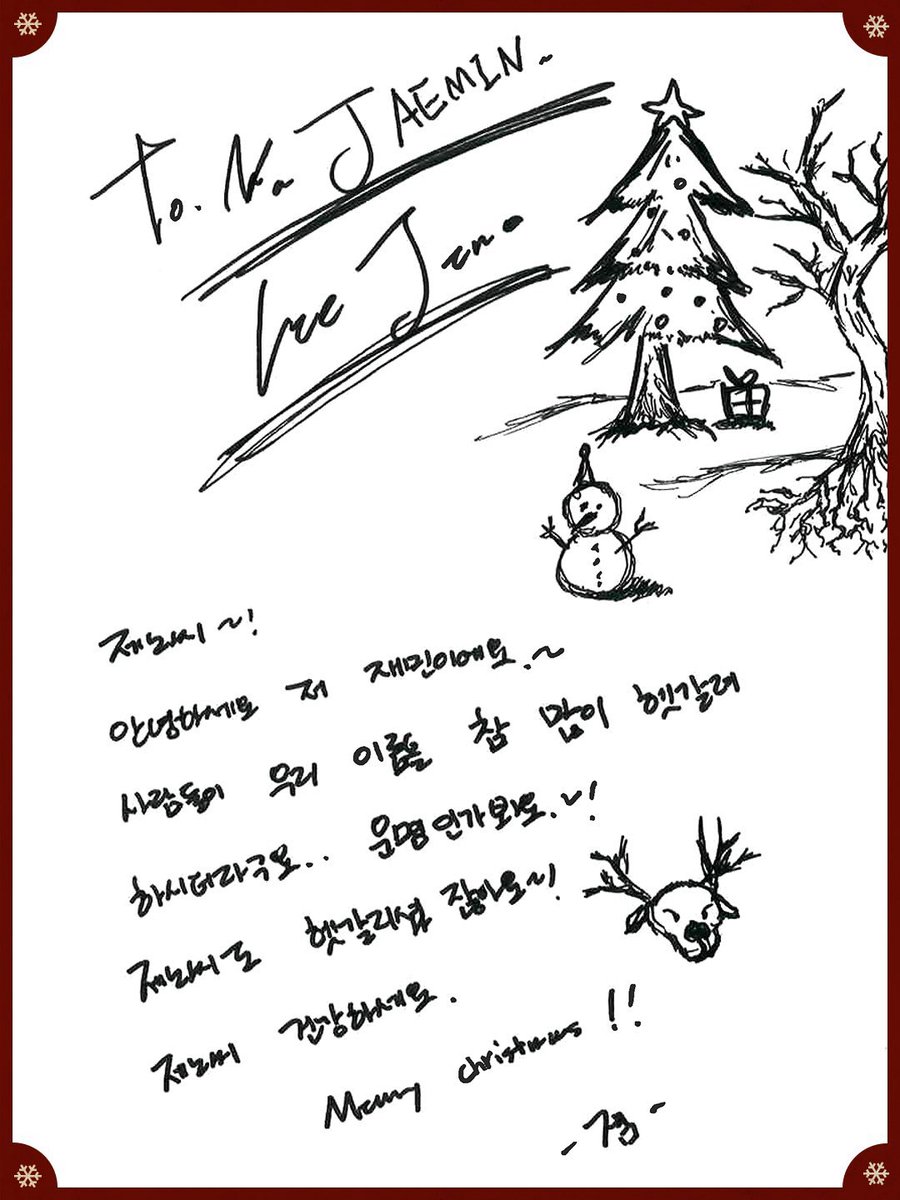 To. Na JAEMIN.~
Lee Jeno
제노씨~!
안녕하세요 저 재민이에요.~
사람들이 우리 이름을 참 많이 헷갈려
하시더라구요.. 운명인가봐요.~!
제노씨도 헷갈리셨잖아요~!
제노씨 건강하세요.
Merry christmas!!